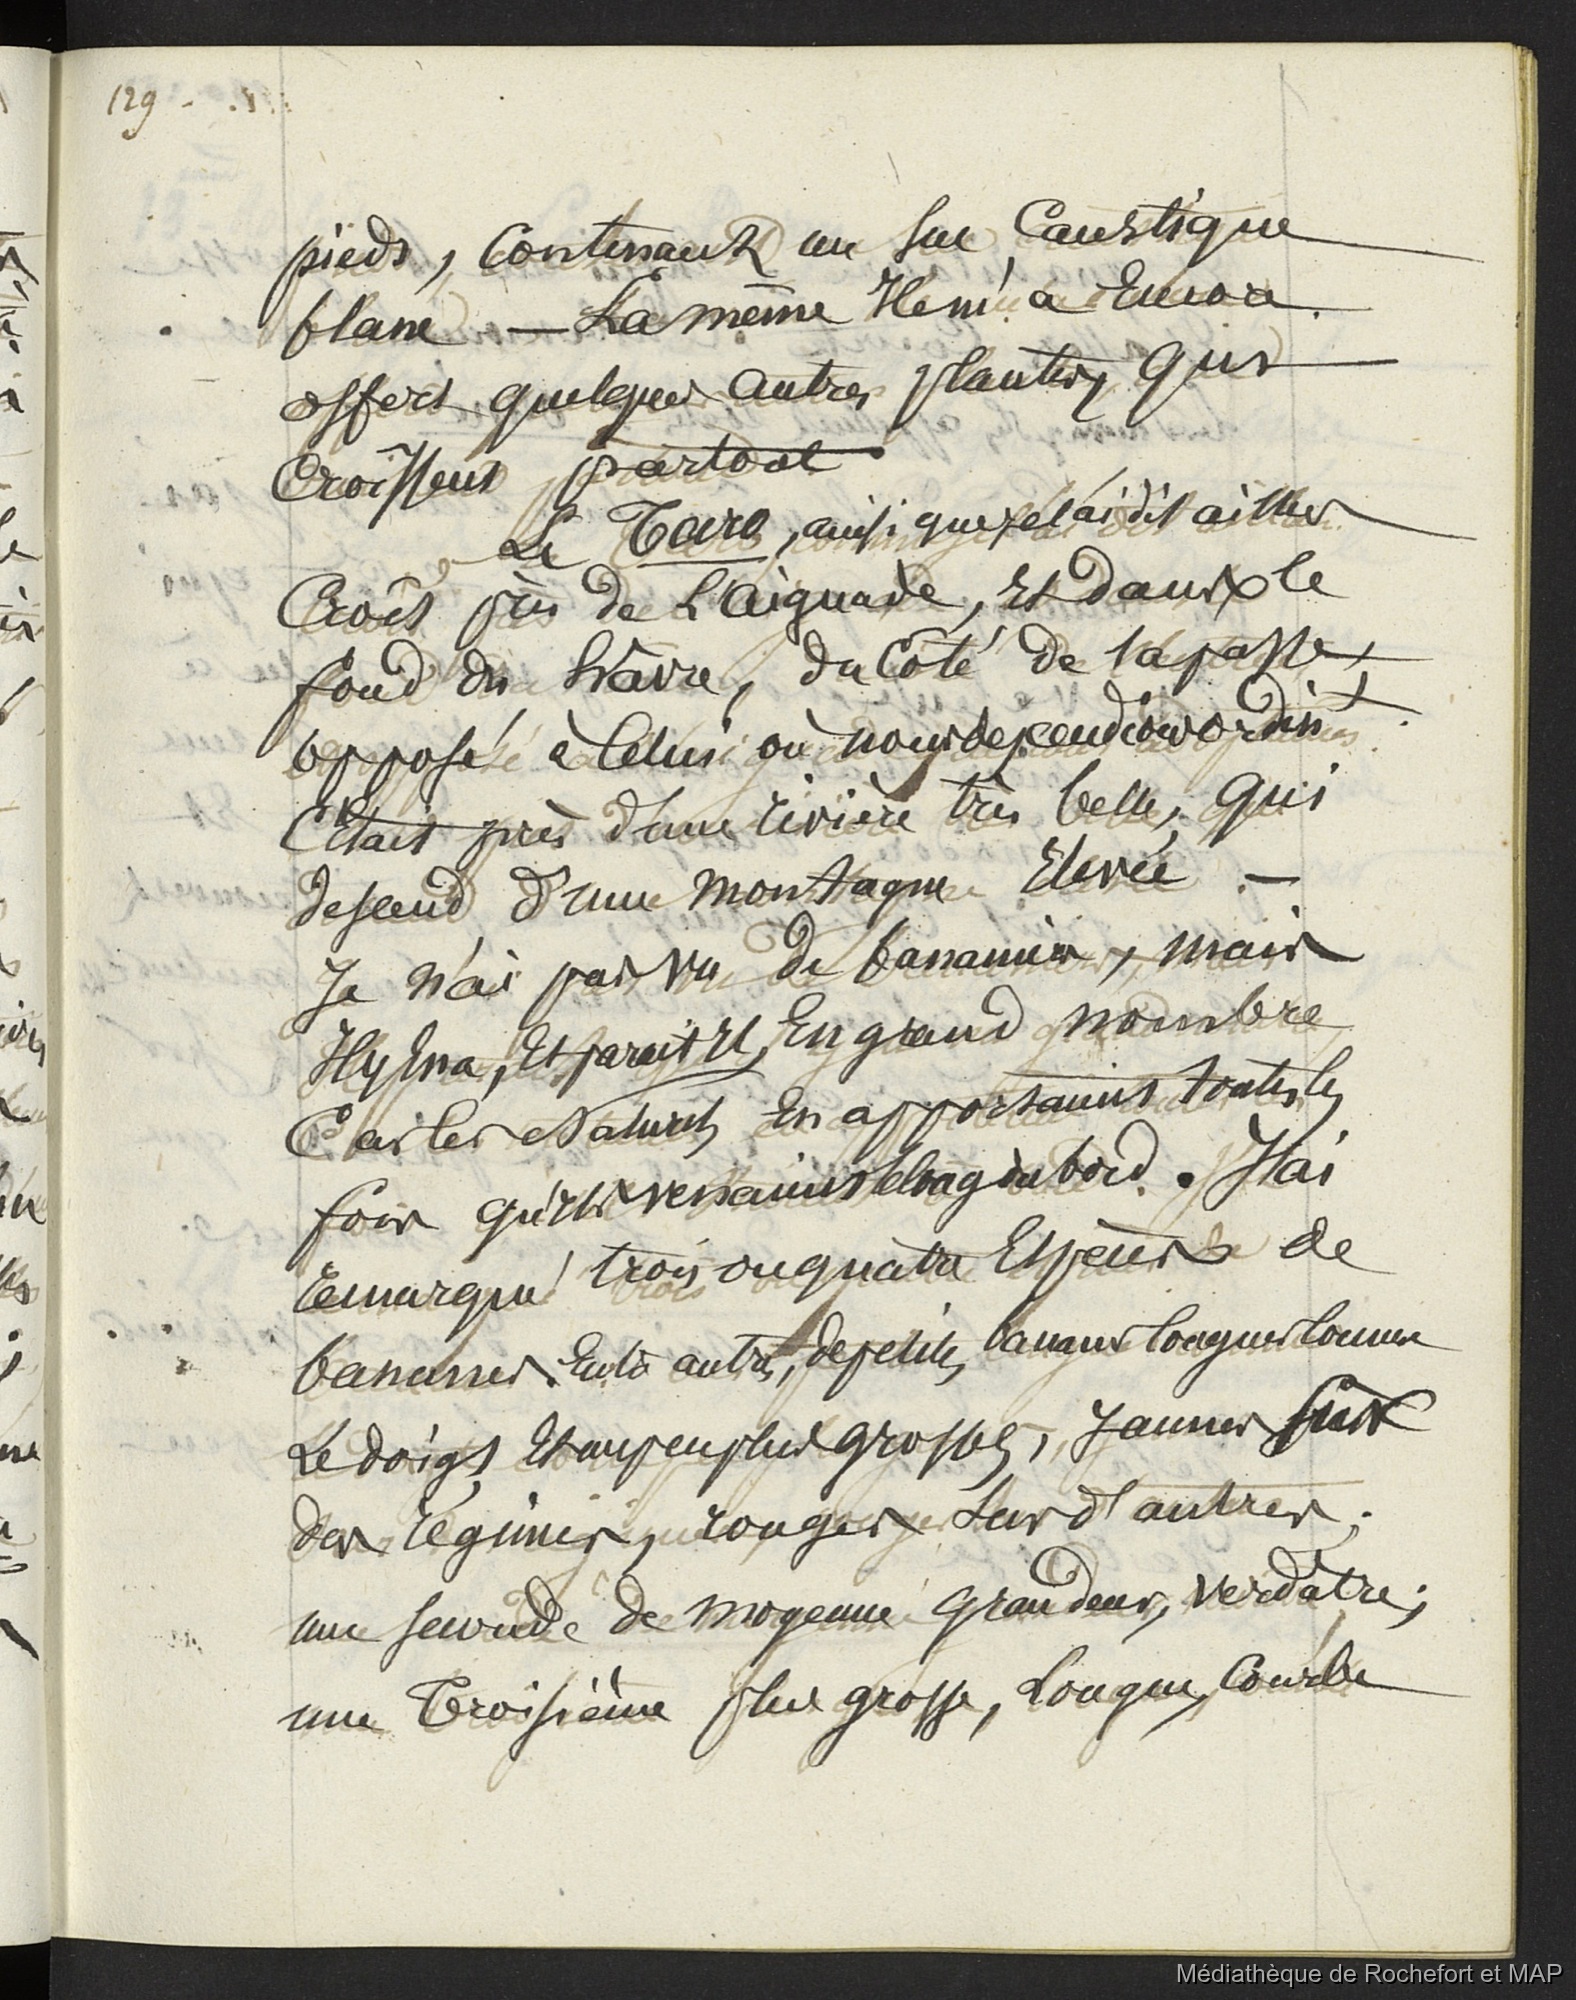 129 -
pieds, Contenant un suc Caustique
blanc — La même Ile m'a Encore
offert quelques autres plantes, qui
Croissent partout
Le Taro, ainsi que je l'ai dit ailleurs
Croît près de L'aiguade, Et dans le
fond du havre, du Côté de la passe,
opposé à Celui où nous descendions ordin.t
C'était près d'une rivière très belle, qui
descend d'une montagne Elevée —
Je n'ai pas vu de bananiers, mais
Il y En a, Et parait-Il, En grand nombre
Car les Naturels En apportaient toutes les
fois qu'ils venaient le long du bord. J'ai
remarqué trois ou quatre Espèces de
bananes. Entre autres, de petites bananes longues comme
Le doigt, Et un peu plus grosses, Jaunes sur
des régimes, rouges sur d'autres;
une seconde de moyenne grandeur, verdâtre;
une Troisième plus grosse, Longue, Courbe
Médiathèque de Rochefort et MAP